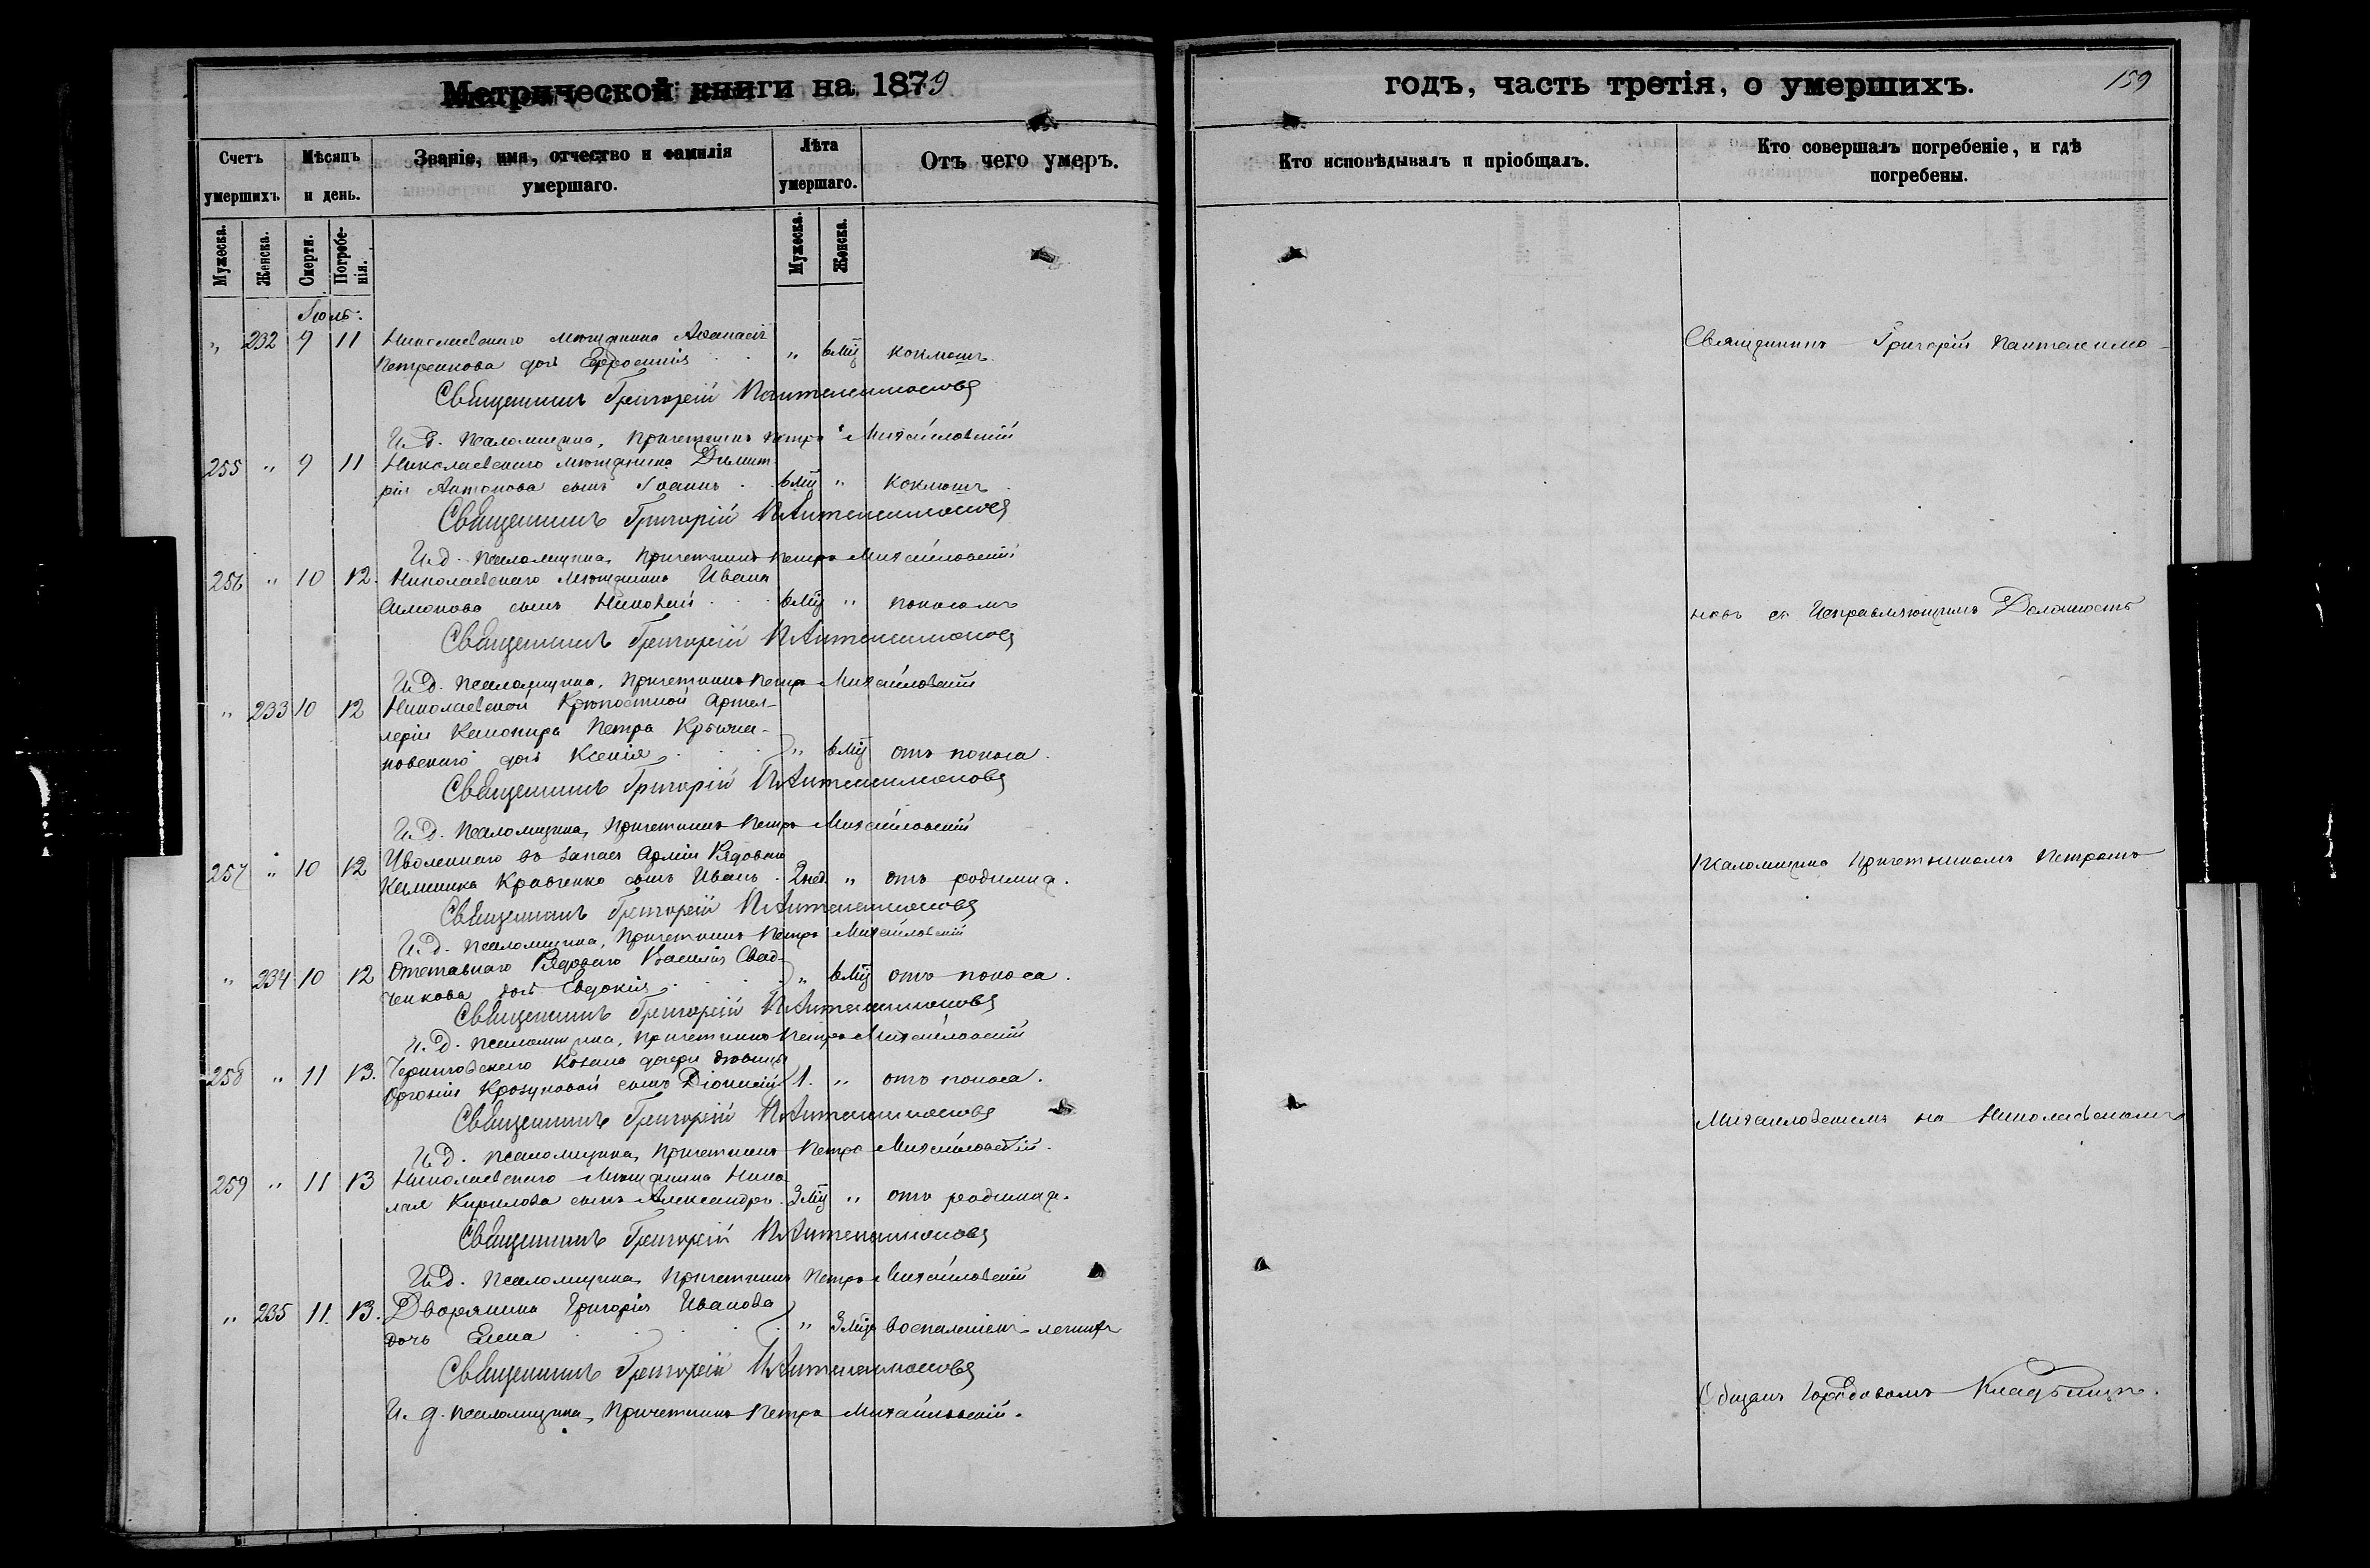 Метрической книги на 1879
Счетъ умершихъ
Мѣсяцъ и день.
Званіе, имя, отчество и фамилія умершаго.
Лѣта умершаго.
Отъ чего умеръ.
Мужеска.
Женска.
Смерти.
Погребенія.
Мужеска.
Женска.
Іюль:
" 232 9 11 Николаевскаго мѣщанина Аѳанасія
Петренкова дочь Ефросинія " 6 мц коклюшъ
Священникъ Григорій Пантелеимоновъ
И. д. псаломщика, причетникъ Петръ Михайловскій
255 " 9 11 Николаевскаго мѣщанина Димит-
рія Антонова сынъ Іоаннъ 6 мц " коклюшъ
Священникъ Григорій Пантелеимоновъ
И. д. псаломщика, причетникъ Петръ Михайловскій
256 " 10 12 Николаевскаго мѣщанина Ивана
Симонова сынъ 6 мц " поносомъ
Священникъ Григорій Пантелеимоновъ
И. д. псаломщика, причетникъ Петръ Михайловскій
" 233 10 12 Николаевской Крѣпостной Артил-
леріи Канонира Петра
новскаго дочь Ксенія " 6 мц отъ поноса
Священникъ Григорій Пантелеимоновъ
И. д. псаломщика, причетникъ Петръ Михайловскій
257 " 10 12 Уволеннаго въ запасъ Арміи Рядового
Кравченко сынъ Иванъ 2 нед. " отъ родимца.
Священникъ Григорій Пантелеимоновъ
И. д. псаломщика, причетникъ Петръ Михайловскій
" 234 10 12 Отставного Рядового Василія
ченкова дочь Евдокія " 6 мц отъ поноса.
Священникъ Григорій Пантелеимоновъ
И. д. псаломщика, причетникъ Петръ Михайловскій
258 " 11 13. Черниговскаго Козака дочери дѣвицы
сынъ Діонисій 1. " отъ поноса.
Священникъ Григорій Пантелеимоновъ
И. д. псаломщика, причетникъ Петръ Михайловскій.
259 " 11 13 Николаевскаго Мѣщанина Нико
лая Кирилова сынъ Александръ 3 мц " отъ родимца.
Священникъ Григорій Пантелеимоновъ
И. д. псаломщика, причетникъ Петръ Михайловскій
" 235 11. 13. Дворянина Григорія Иванова
дочь Елена " 3 мца воспаленіемъ легкихъ
Священникъ Григорій Пантелеимоновъ
И. д. псаломщика, Причетникъ Петръ Михайловскій.
годъ, часть третія, о умершихъ.
159
Кто исповѣдывалъ и пріобщалъ.
Кто совершалъ погребеніе, и гдѣ погребены.
Священникъ Григорій Пантелеимо-
новъ съ Исправляющимъ Должность
Псаломщика Причетникомъ Петромъ
Михайловскимъ на Николаевскомъ
Общемъ Городовомъ Кладбищѣ.